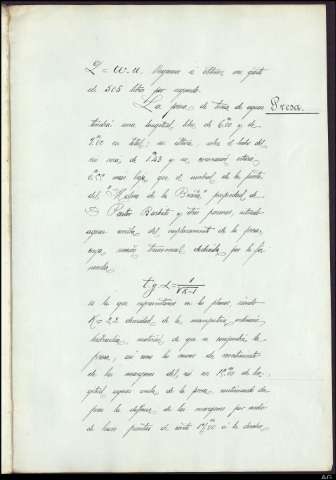 Q = w. u. llegamos á obtener un gasto
de 505 litros por segundo.
La presa de toma de aguas
Presa.
tendrá una longitud, libre, de 6.00 y de
en total; su altura, sobre el lecho del
río será de 1.43 y su coronación estará
más baja que el umbral de la puerta
del "Molino de la Braña" propiedad de
D. Pastor Barbeito y otros personas, situado
aguas arriba del emplazamiento de la presa,
cuya sección transversal, deducida por la fór-
mula
tg α = 1/√K-1
es la que representamos en los planos siendo
K = 2,2 densidad de la mampostería ordinaria
hidráulica, material de que se compondrá la
presa, así como los muros de revestimiento
de las márgenes del río en de lon-
gitud, aguas arriba de la presa, continuando des-
pues la defensa de las márgenes por medio
de muros á la derecha